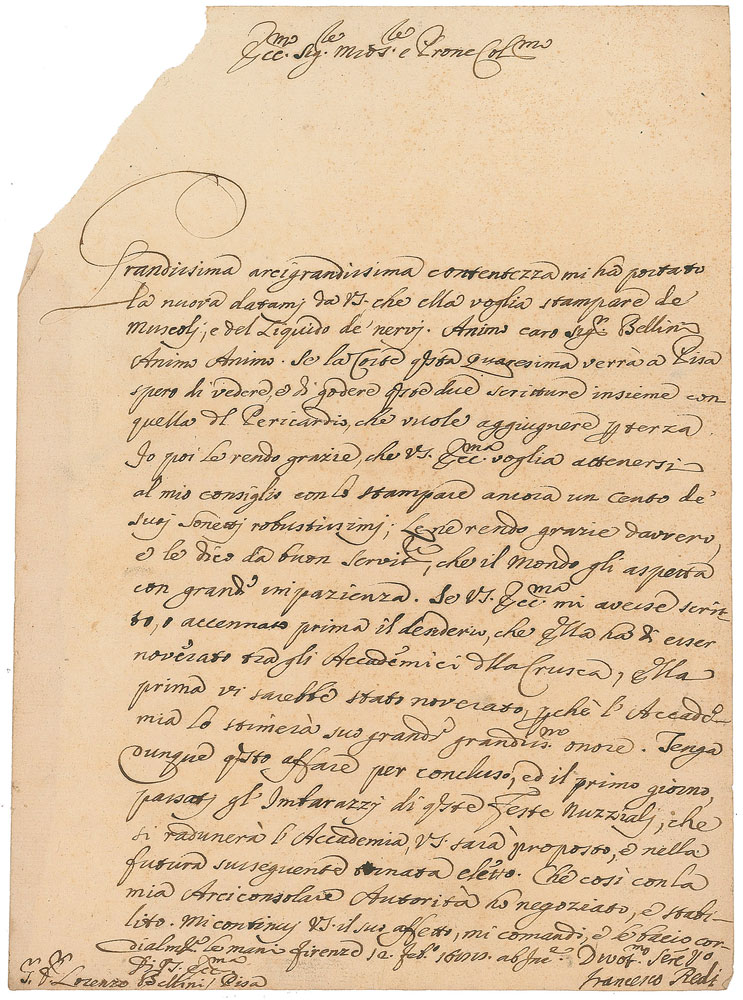 Ecc.mo Sig.re Mio Sig.re e Prone Col.mo
Grandissima arcigrandissima contentezza mi ha portato
la nuova datamj da VS. che ella voglia stampare de
Muscolj, e del Liquido de' nervj. Animo caro Sig.r Bellin
Animo Animo. Se la Corte qsta quaresima verrà a Pisa
spero di vedere, e di godere qste due scritture insieme con
quella dl Pericardio, che vuole aggiugnere p terza.
Io poi le rendo grazie, che VS. Ecc.ma voglia attenersi
al mio consiglio con lo stampare ancora un Cento de'
suoj sonettj robustissimj; Le ne rendo grazie davvero,
e le dico da buon servit.re, che il Mondo gli aspetta
con grand.e impazienza. Se VS. Ecc.ma mi avesse scrit-
to, o accennato prima il desiderio, che Ella ha di esser
noverato tra gli Accademici dlla Crusca, Ella
prima vi sarebbe stato noverato, pchè l'Accade-
mia lo stimerà suo grand.e grandiss.mo onore. Tenga
dunque qsto affare per concluso, ed il primo giorno,
passatj gl'Imbarazzj di qste Feste Nuzzialj, che
si radunerà l'Accademia, VS. sarà proposto, e nella
futura susseguente tornata eletto. Che così con la
mia Arciconsolare Autorità ho negoziato, e stabi-
lito. Mi continuj VS. il suo affetto, mi comandi, e le bacio cor-
dialm.te le mani Firenze 12. feb.o ab Inc.e
Di VS. Ecc.ma
Divot.mo Ser.e Vo
Lorenzo Bellini / Pisa
Francesco Redi